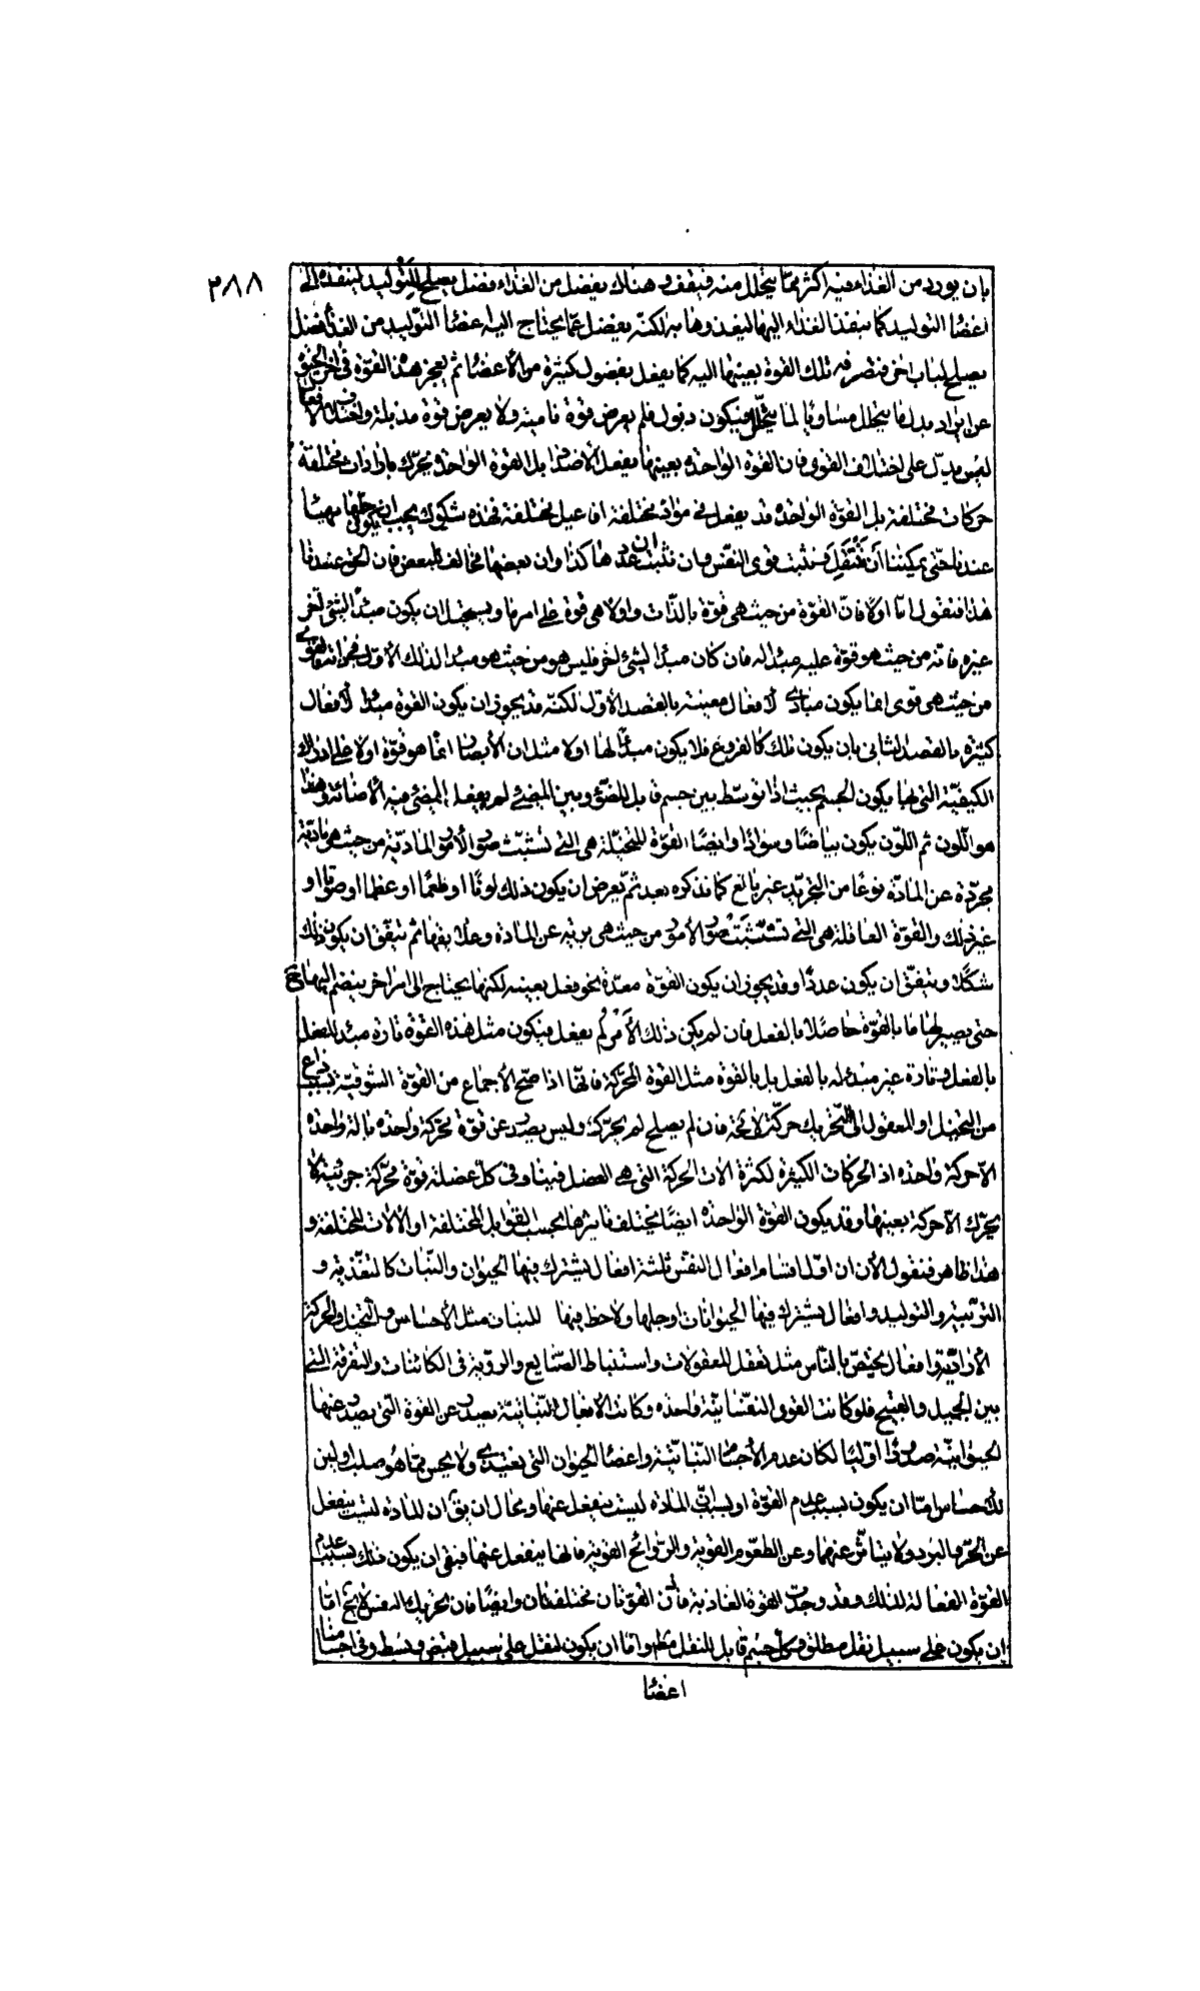 ٢٨٨
بان يورد من الغذاء فيه اكثر مما يتحلل منه فيقف وهناك يفضل من الغذاء فضل يصلح للتوليد لينفذه الى
اعضاء التوليد كما ينفذ الغذاء اليها ليغذوها به لكنه يفضل عما يحتاج اليه اعضاء التوليد من الغذاء فضل
يصلح لباب اخر فتصرفه تلك القوة بعينها اليه كما يفعل بفضول كثيرة من الأعضاء ثم يعجز هذه القوة في اخر الحيوة
عن ايراد بدل ما يتحلل مساويا لما يتحلل فيكون ذبول فلم يعرض قوة نامية ولا يعرض قوة مذبلة واختلاف الأفعال
ليس يدل على اختلاف القوى فان القوة الواحدة بعينها يفعل الأضداد بل القوة الواحدة يحرك بارادات مختلفة
حركات مختلفة بل القوة الواحدة قد يفعل في مواد مختلفة افاعيل مختلفة فهذه شكوك يجب ان يكون حلها مهيئا
عندنا حتى يمكننا أن ننتقل فنثبت قوى النفس وبان نثبت ان عددها كذا وان بعضها مخالف للبعض فان الحق عندنا
هذا فنقول اما اولا فان القوة من حيث هي قوة بالذات واولا هي قوة على امر ما ويستحيل ان يكون مبدأ لشئ اخر
غيره فانه من حيث هو قوة عليه مبدأ له فان كان مبدأ لشئ اخر فليس هو من حيث هو مبدأ لذلك الأول في ذاته فالقوى
من حيث هي قوى انما يكون مبادى لأفعال معينة بالقصد الأول لكنه قد يجوز ان يكون القوة مبدأ لأفعال
كثيرة بالقصد الثاني بان يكون تلك كالفروع فلا يكون مبدأ لها اولا مثل ان الأبصار انما هو قوة اولا على ادراك
الكيفية التي بها يكون الجسم بحيث اذا توسط بين جسم قابل للضوء وبين المضئ لم يفعل المضئ فيه الأضائة وهذا
هو اللون ثم اللون يكون بياضا وسوادا وايضا القوة المتخيلة هي التي تستثبت صور الأمور المادية من حيث هي مادية
مجردة عن المادة نوعا من التجريد غير بالغ كما نذكره بعد ثم يعرض ان يكون ذلك لونا او طعما او عظما او صوتا او
غير ذلك والقوة العاقلة هي التي تستثبت صور الأمور من حيث هي برية عن المادة وعلائقها ثم يتفق ان يكون ذلك
شكلا ويتفق ان يكون عددا وقد يجوز ان يكون القوة معدة نحو فعل بعينه لكنها يحتاج الى امر اخر ينضم اليها
حتى يصير لها ما بالقوة حاصلا بالفعل فان لم يكن ذلك الأمر لم يفعل فيكون مثل هذه القوة تارة مبدأ للفعل
بالفعل وتارة غير مبدأ له بالفعل بل بالقوة مثل القوة المحركة فانها اذا صح الأجماع من القوة الشوقية بسبب داع
من التخيل او المعقول الى التحريك حركة لامحة فان لم يصلح لم يحرك وليس يصدر عن قوة محركة واحدة بالة واحدة
الا حركة واحدة اذ الحركات الكثيرة لكثرة الات الحركة التي هي العضل فينا وفي كل عضلة قوة محركة جزئية لا
يحرك الا حركة بعينها وقد يكون القوة الواحدة ايضا يختلف تاثيرها بحسب القوابل المختلفة او الالات المختلفة و
هذا ظاهر فنقول الأن ان اول اقسام افعال النفس ثلثة افعال يشترك فيها الحيوان والنبات كالتغذية و
التربية والتوليد وافعال يشترك فيها الحيوانات او جلها ولا حظ فيها للنبات مثل الأحساس والتخيل والحركة
الأرادية وافعال يختص بالناس مثل تعقل المعقولات واستنباط الصنايع والروية في الكائنات والتفرقة التي
بين الجميل والقبيح فلو كانت القوى النفسانية واحدة وكانت الأفعال النباتية يصدر عن القوة التي يصدر عنها
الحيوانية صدورا اوليا لكان عدم الأجسام النباتية واعضاء الحيوان التي تغتذى ولا يحس مما هو صلب او لين
للأحساس اما ان يكون بسبب عدم القوة او بسبب ان المادة ليست ينفعل عنها ومحال ان يق ان المادة ليست ينفعل
عن الحر والبرد ولا يتاثر عنهما وعن الطعوم القوية والروائح القوية فانها ينفعل عنها فبقى ان يكون ذلك بسبب عدم
القوة الفعالة لذلك وقد وجدت القوة الغاذية فاذن القوتان مختلفتان وايضا فان تحريك النفس لا يخ اما
ان يكون على سبيل نقل مطلق وكل جسم قابل للنقل مطلقا واما ان يكون لنقل على سبيل قبض وبسط وفى اجسامنا
اعضاء